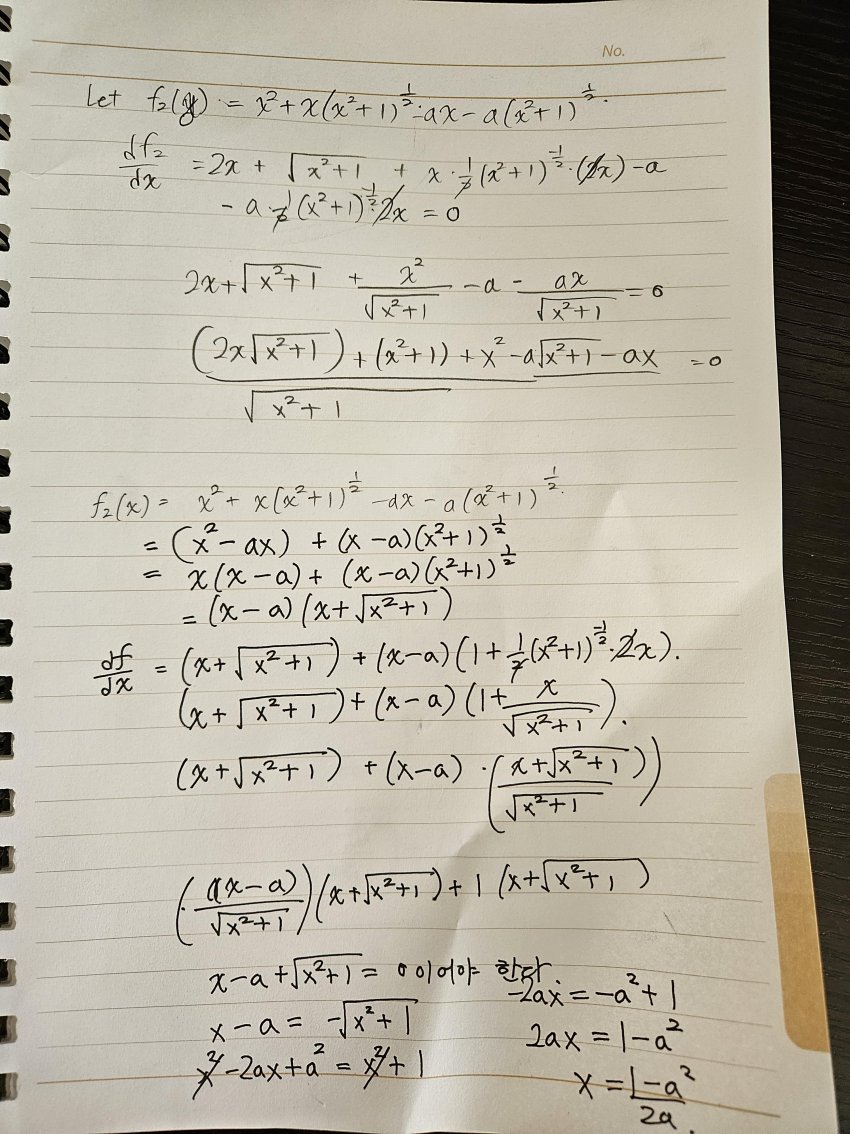 No.
Let f₂(x) = x² + x(x²+1)^½ - ax - a(x²+1)^½.
df₂/dx = 2x + √(x²+1) + x · 1/2 (x²+1)^(-½) · (2x) - a
- a · 1/2 (x²+1)^(-½) · 2x = 0
2x + √(x²+1) + x²/√(x²+1) - a - ax/√(x²+1) = 0
((2x√(x²+1)) + (x²+1) + x² - a√(x²+1) - ax)/√(x²+1) = 0
f₂(x) = x² + x(x²+1)^½ - ax - a(x²+1)^½.
= (x² - ax) + (x-a)(x²+1)^½
= x(x-a) + (x-a)(x²+1)^½
= (x-a)(x+√(x²+1))
df/dx = (x+√(x²+1)) + (x-a)(1 + 1/2 (x²+1)^(-½) · 2x).
(x+√(x²+1)) + (x-a)(1 + x/√(x²+1)).
(x+√(x²+1)) + (x-a) · ((x+√(x²+1))/√(x²+1))
((x-a)/√(x²+1))(x+√(x²+1)) + 1 (x+√(x²+1))
x-a+√(x²+1) = 0 이어야 한다.
x-a = -√(x²+1)
x² - 2ax + a² = x² + 1
-2ax = -a² + 1
2ax = 1-a²
x = (1-a²)/2a.